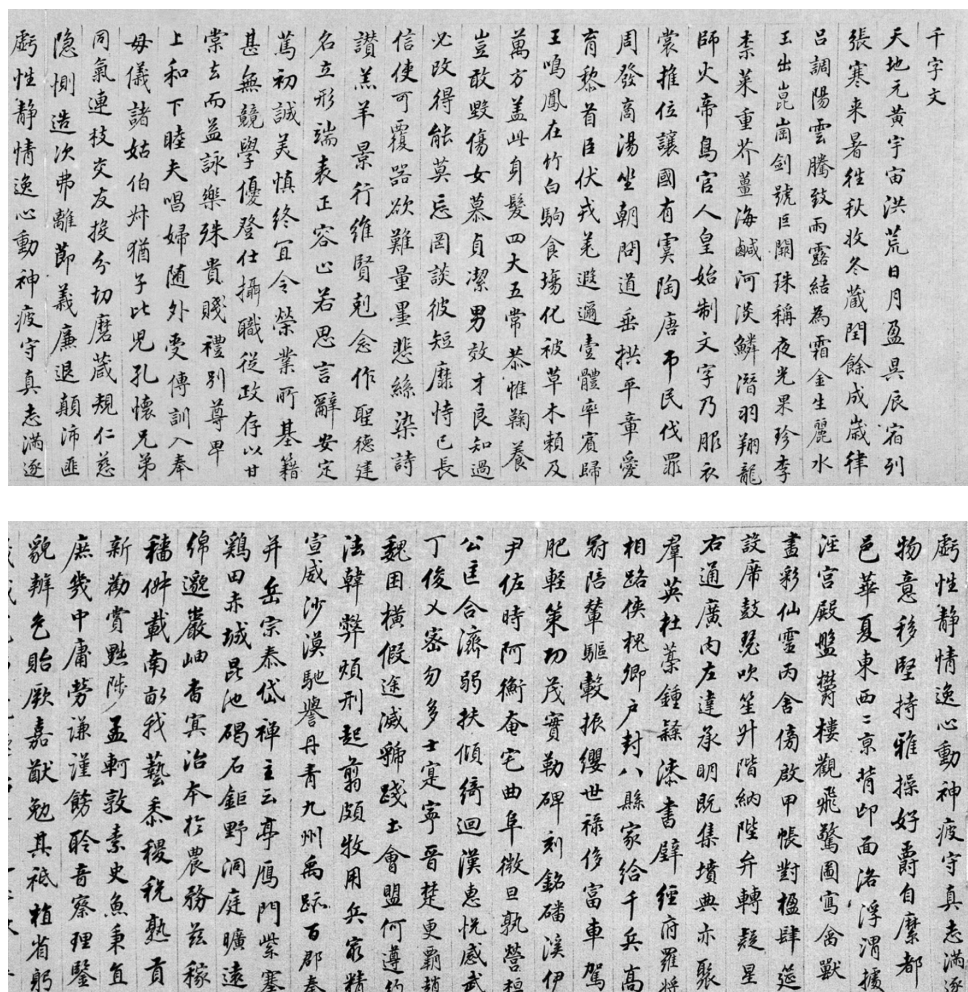 千字文
天地元黄宇宙洪荒日月盈昃辰宿列
張寒来暑往秋收冬蔵閏餘成歳律
吕調陽雲騰致雨露結為霜金生麗水
玉出崑崗剑號巨闕珠稱夜光果珍李
柰菜重芥薑海鹹河淡鱗潛羽翔龍
師火帝鳥官人皇始制文字乃服衣
裳推位讓國有虞陶唐弔民伐罪
周發商湯坐朝問道垂拱平章愛
育黎首臣伏戎羌遐邇壹體率賓歸
王鳴鳳在竹白駒食場化被草木頼及
萬方盖此身髮四大五常恭惟鞠養
豈敢毀傷女慕貞潔男效才良知過
必改得能莫忘罔談彼短靡恃己長
信使可覆器欲難量墨悲絲染詩
讃羔羊景行維賢剋念作聖德建
名立形端表正容止若思言辭安定
篤初誠美慎終宜令榮業所基籍
甚無競學優登仕攝職從政存以甘
棠去而益詠樂殊貴賤禮别尊卑
上和下睦夫唱婦随外受傅訓入奉
母儀諸姑伯叔猶子比兒孔懷兄弟
同氣連枝交友投分切磨箴規仁慈
隐惻造次弗離節義廉退顛沛匪
虧性静情逸心動神疲守真志滿逐
虧性静情逸心動神疲守真志滿逐
物意移堅持雅操好爵自縻都
邑華夏東西二京背邙面洛浮渭據
涇宮殿盤欝樓觀飛驚圖寫禽獸
畫彩仙靈丙舍傍啟甲帳對楹肆筵
設席鼓瑟吹笙升階納陛弁轉疑星
右通廣内左達承明既集墳典亦聚
羣英杜藁鍾隸漆書壁經府羅將
相路俠槐卿户封八縣家給千兵高
冠陪輦驅轂振纓世禄侈富車駕
肥輕策功茂實勒碑刻銘磻溪伊
尹佐時阿衡奄宅曲阜微旦孰營桓
公匡合濟弱扶傾綺迴漢惠悦感武
丁俊乂密勿多士寔寧晉楚更霸趙
魏困橫假途滅虢踐土會盟何遵約
法韓弊煩刑起翦頗牧用兵冣精
宣威沙漠馳譽丹青九州禹跡百郡秦
并岳宗泰岱禅主云亭鴈門紫塞
鷄田赤城昆池碣石鉅野洞庭曠遠
綿邈巖岫杳冥治本於農務兹稼
穡俶載南畝我藝黍稷税熟貢
新勸賞黜陟孟軻敦素史魚秉直
庶幾中庸勞謙謹勑聆音察理鑒
貌辨色貽厥嘉猷勉其祗植省躬